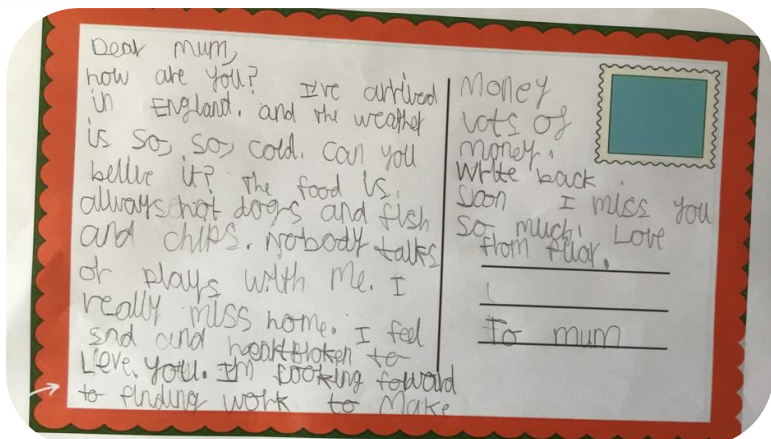 Dear mum,
how are you? I've arrived
in England. and the weather
is so, so, cold. can you
bellve it? The food is
always hot dogs and fish
and chips. Nobody talks
or plays with me. I
really miss home. I feel
snd and heartbroken to
Leve. you. Im looking foward
to finding work to make
money
Lots of
money.
Write back
soon I miss you
so much! Love
from Pilar.
To mum